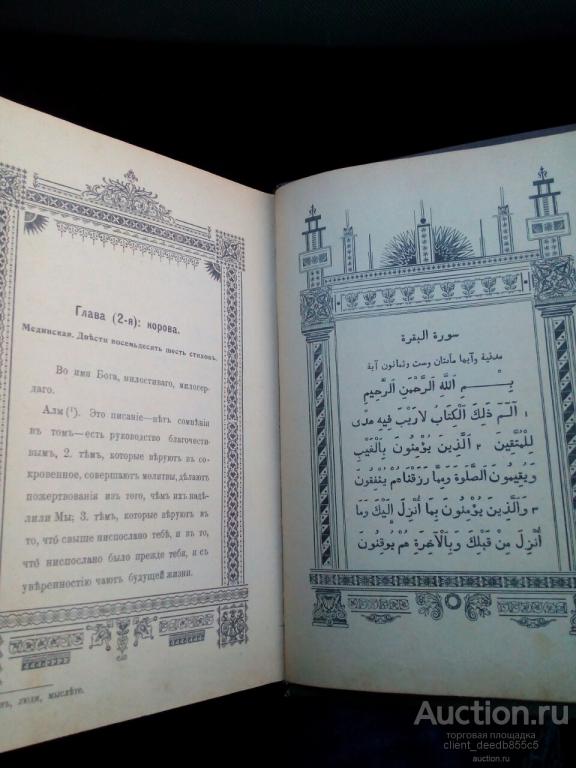 Глава (2-я): корова.
Мединская. Двѣсти восемьдесять шесть стиховъ.
Во имя Бога, милостиваго, милосер-
даго.
Алм (¹). Это писаніе—нѣтъ сомнѣнія
въ томъ—есть руководство благочести-
вымъ, 2. тѣмъ, которые вѣруютъ въ со-
кровенное, совершаютъ молитвы, дѣлаютъ
пожертвованія изъ того, чѣмъ ихъ надѣ-
лили Мы; 3. тѣмъ, которые вѣруютъ въ
то, что́ свыше ниспослано тебѣ, и въ то,
что́ ниспослано было прежде тебя, и съ
увѣренностію чаютъ будущей жизни.
люди, мыслѣте.
سورة البقرة
مدنية وآيها مأتتان وست وثمانون آية
بِسْمِ اللهِ الرَّحْمٰنِ الرَّحِيمِ
١ آلٓمٓ ذٰلِكَ الْكِتَابُ لَا رَيْبَ فِيهِ هُدًى
لِلْمُتَّقِينَ ٢ الَّذِينَ يُؤْمِنُونَ بِالْغَيْبِ
وَيُقِيمُونَ الصَّلٰوةَ وَمِمَّا رَزَقْنَاهُمْ يُنْفِقُونَ
٣ وَالَّذِينَ يُؤْمِنُونَ بِمَا أُنْزِلَ إِلَيْكَ وَمَا
أُنْزِلَ مِنْ قَبْلِكَ وَبِالْآخِرَةِ هُمْ يُوقِنُونَ
Auction.ru
торговая площадка
client_deedb855c5
auction.ru